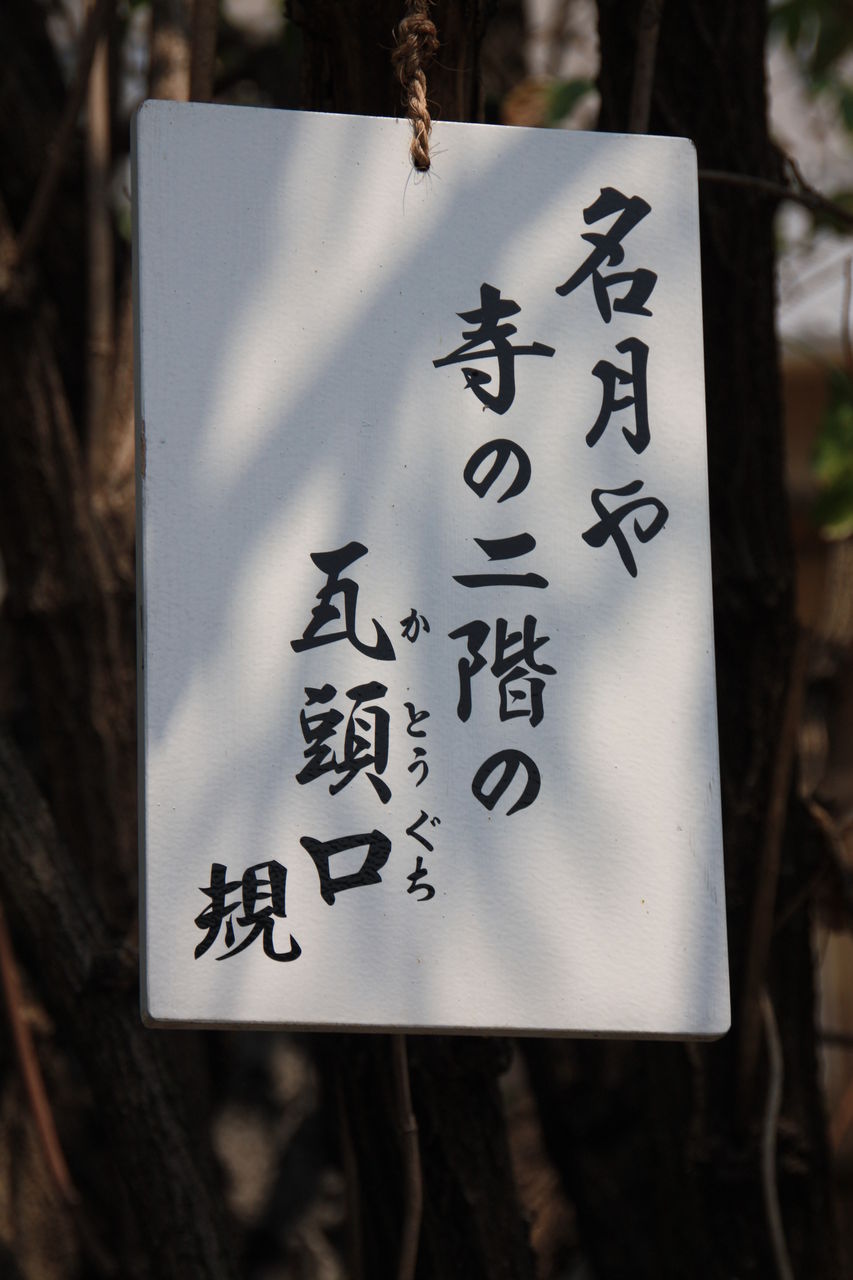 名月や
寺の二階の
瓦頭口
かとうぐち
規